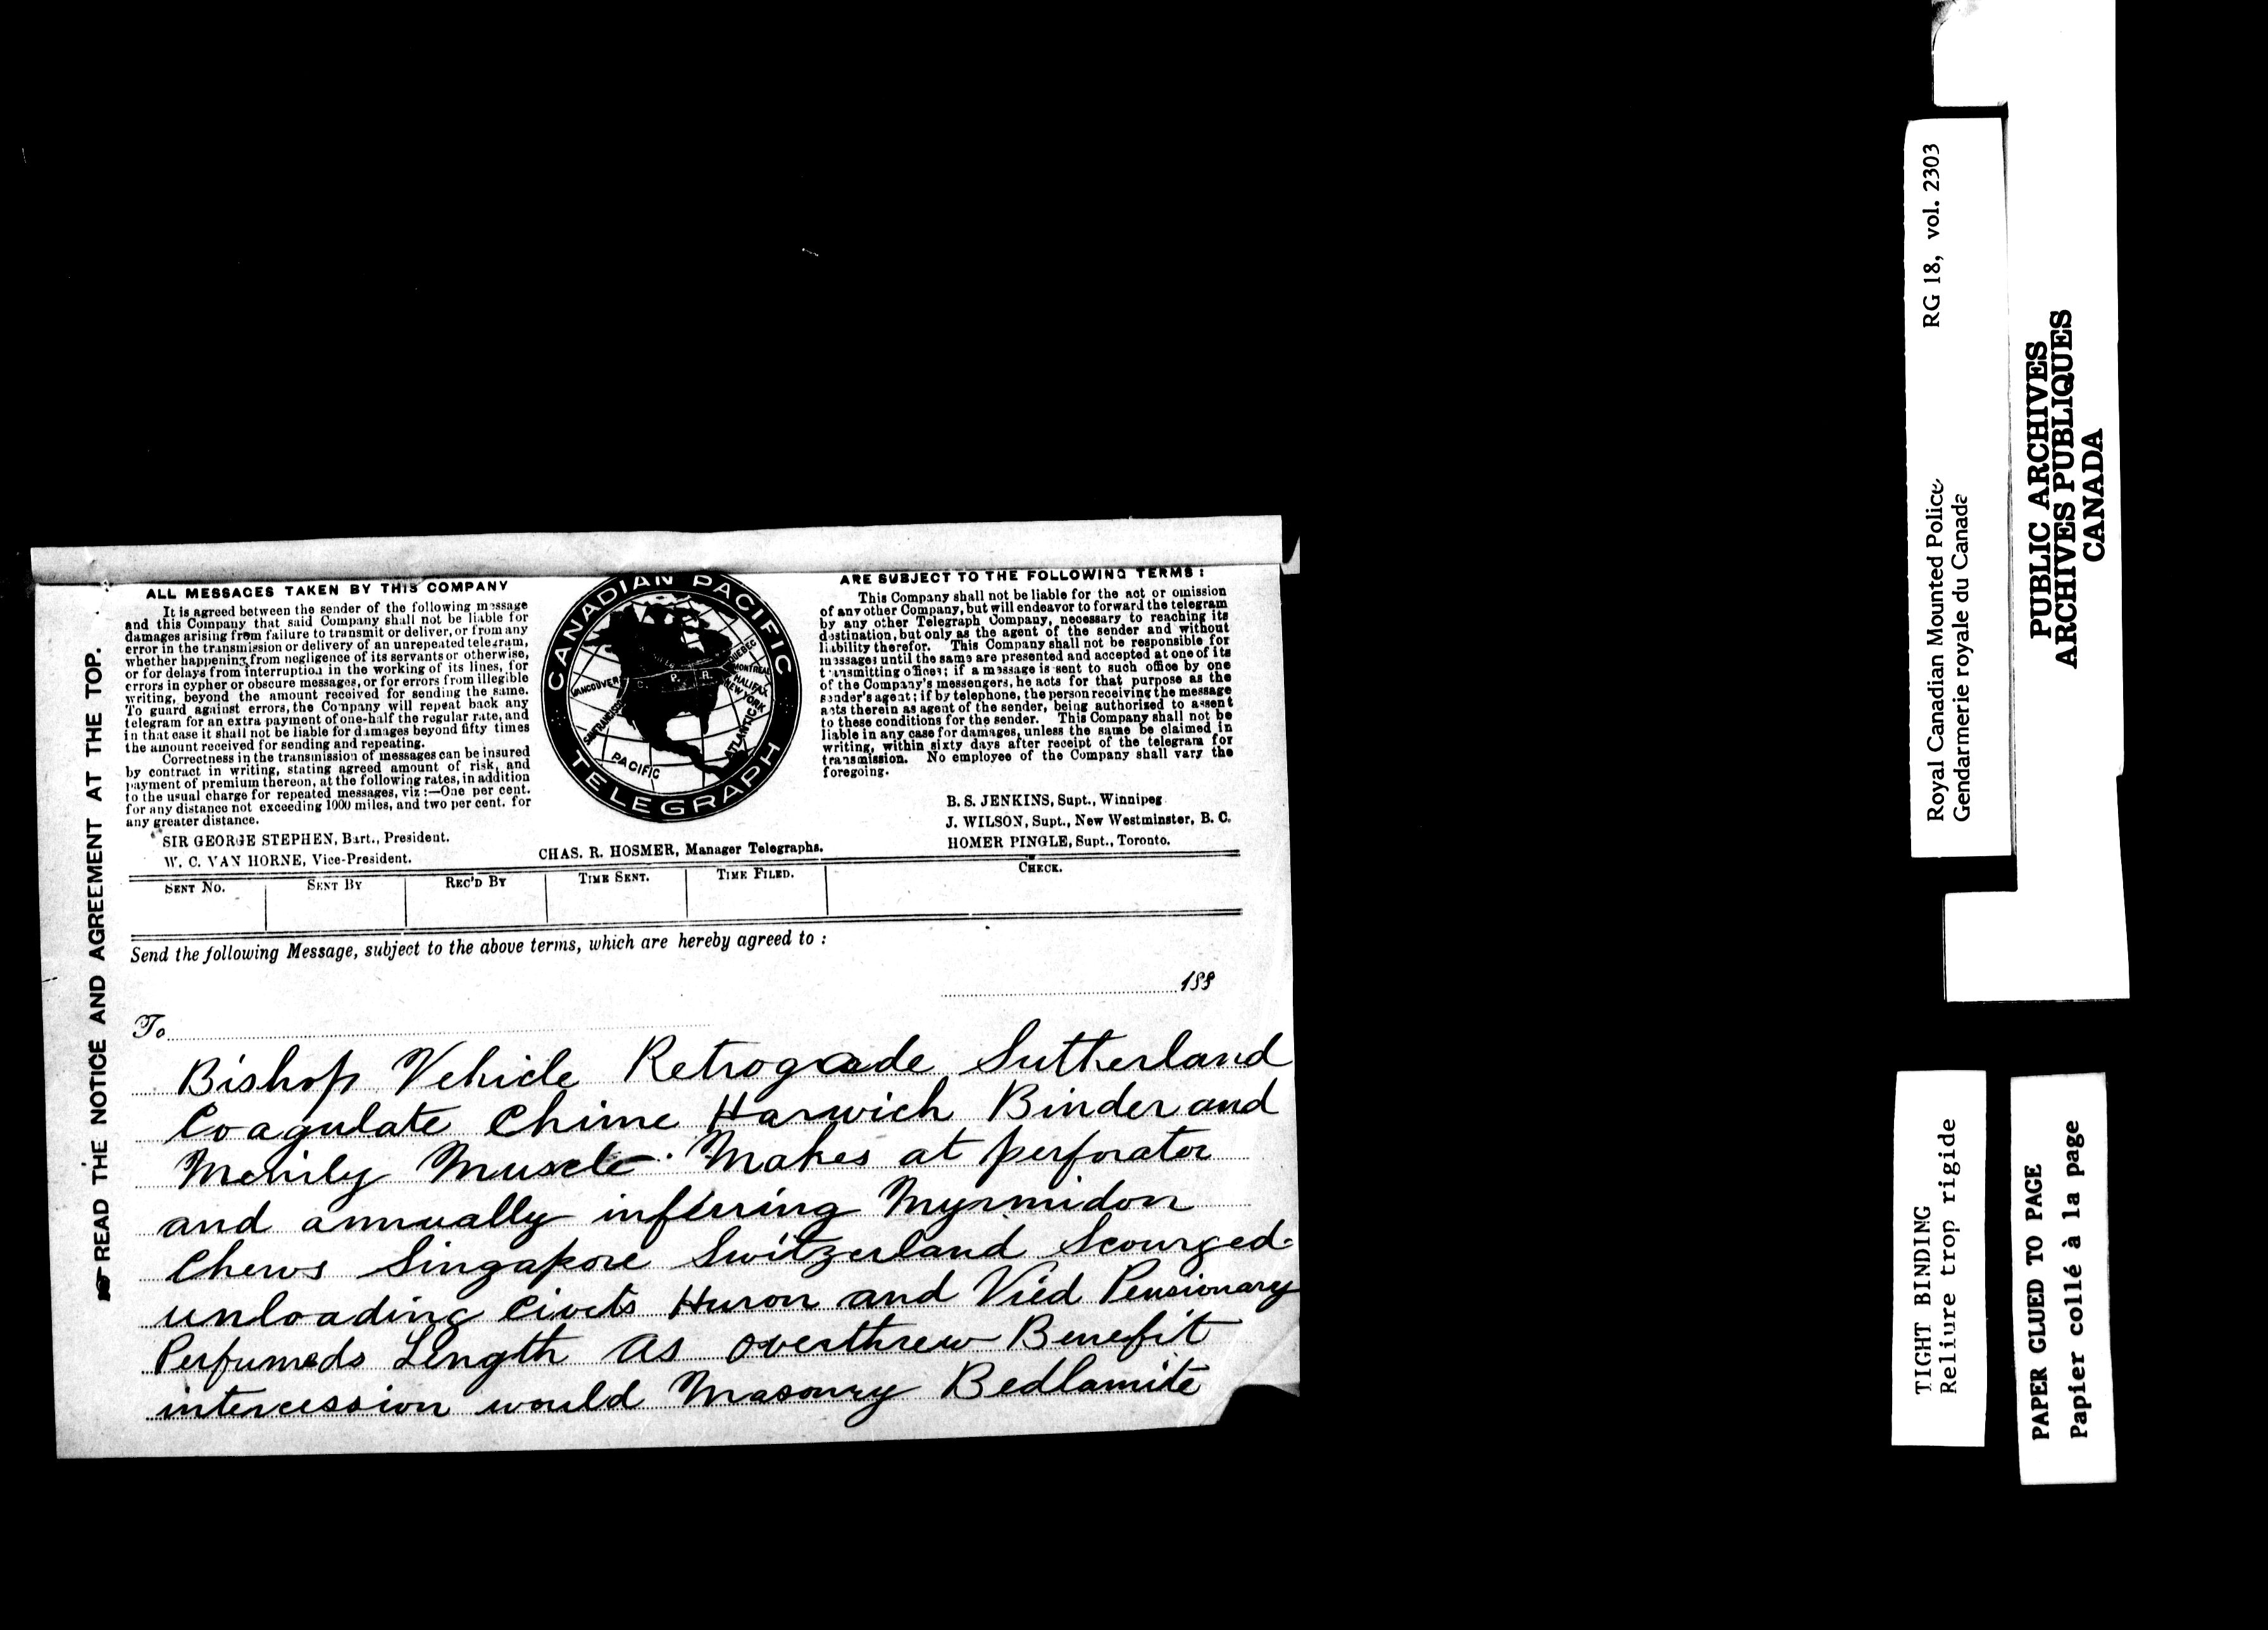 ALL MESSAGES TAKEN BY THIS COMPANY
It is agreed between the sender of the following message
and this Company that said Company shall not be liable for
damages arising from failure to transmit or deliver, or from any
error in the transmission or delivery of an unrepeated telegram,
whether happening from negligence of its servants or otherwise,
or for delays from interruption in the working of its lines, for
errors in cypher or obscure messages, or for errors from illegible
writing, beyond the amount received for sending the same.
To guard against errors, the Company will repeat back any
telegram for an extra payment of one-half the regular rate, and
in that case it shall not be liable for damages beyond fifty times
the amount received for sending and repeating.
Correctness in the transmission of messages can be insured
by contract in writing, stating agreed amount of risk, and
payment of premium thereon, at the following rates, in addition
to the usual charge for repeated messages, viz :—One per cent.
for any distance not exceeding 1000 miles, and two per cent. for
any greater distance.
SIR GEORGE STEPHEN, Bart., President.
W. C. VAN HORNE, Vice-President.
CANADIAN PACIFIC
TELEGRAPH
VANCOUVER
C. P. R.
QUEBEC
MONTREAL
HALIFAX
NEW YORK
SAN FRANCISCO
ATLANTIC
PACIFIC
CHAS. R. HOSMER, Manager Telegraphs.
ARE SUBJECT TO THE FOLLOWING TERMS :
This Company shall not be liable for the act or omission
of any other Company, but will endeavor to forward the telegram
by any other Telegraph Company, necessary to reaching its
destination, but only as the agent of the sender and without
liability therefor. This Company shall not be responsible for
messages until the same are presented and accepted at one of its
transmitting offices; if a message is sent to such office by one
of the Company's messengers, he acts for that purpose as the
sender's agent; if by telephone, the person receiving the message
acts therein as agent of the sender, being authorized to assent
to these conditions for the sender. This Company shall not be
liable in any case for damages, unless the same be claimed in
writing, within sixty days after receipt of the telegram for
transmission. No employee of the Company shall vary the
foregoing.
B. S. JENKINS, Supt., Winnipeg
J. WILSON, Supt., New Westminster, B. C.
HOMER PINGLE, Supt., Toronto.
SENT NO. SENT BY REC'D BY TIME SENT. TIME FILED. CHECK.
Send the following Message, subject to the above terms, which are hereby agreed to :
188
To
Bishop Vehicle Retrograde Sutherland
Coagulate Chime Harwich Binder and
Merrily Muscle Makes at perforator
and annually inferring Myrmidon
Chews Singapore Switzerland Scourged
unloading Civets Huron and Vied Pensionary
Perfumeds Length As overthrew Benefit
intercession would Masonry Bedlamite
READ THE NOTICE AND AGREEMENT AT THE TOP.
Royal Canadian Mounted Police RG 18, vol. 2303
Gendarmerie royale du Canada
PUBLIC ARCHIVES
ARCHIVES PUBLIQUES
CANADA
TIGHT BINDING
Reliure trop rigide
PAPER GLUED TO PAGE
Papier collé à la page